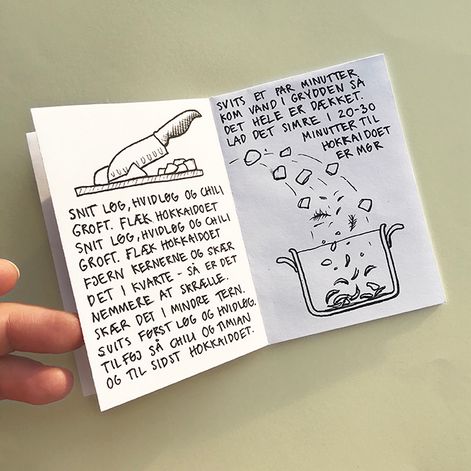 SNIT LØG, HVIDLØG OG CHILI
GROFT. FLÆK HOKKAIDOET
SNIT LØG, HVIDLØG OG CHILI
GROFT. FLÆK HOKKAIDOET
FJERN KERNERNE OG SKÆR
DET I KVARTE - SÅ ER DET
NEMMERE AT SKRÆLLE.
SKÆR DET I MINDRE TERN.
SVITS FØRST LØG OG HVIDLØG.
TILFØJ SÅ CHILI OG TIMIAN
OG TIL SIDST HOKKAIDOET.
SVITS ET PAR MINUTTER
KOM VAND I GRYDDEN SÅ
DET HELE ER DÆKKET.
LAD DET SIMRE I 20-30
MINUTTER TIL
HOKKAIDOET
ER MØR